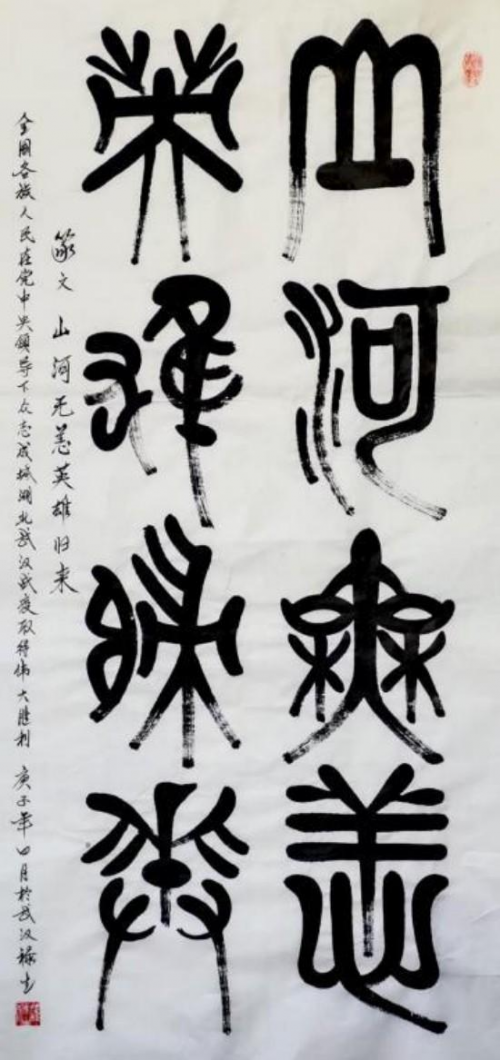 山河無恙
英雄歸來
篆文 山河无恙英雄归来
全国各族人民在党中央领导下众志成城湖北武汉战疫取得伟大胜利 庚子年四月於武汉禄